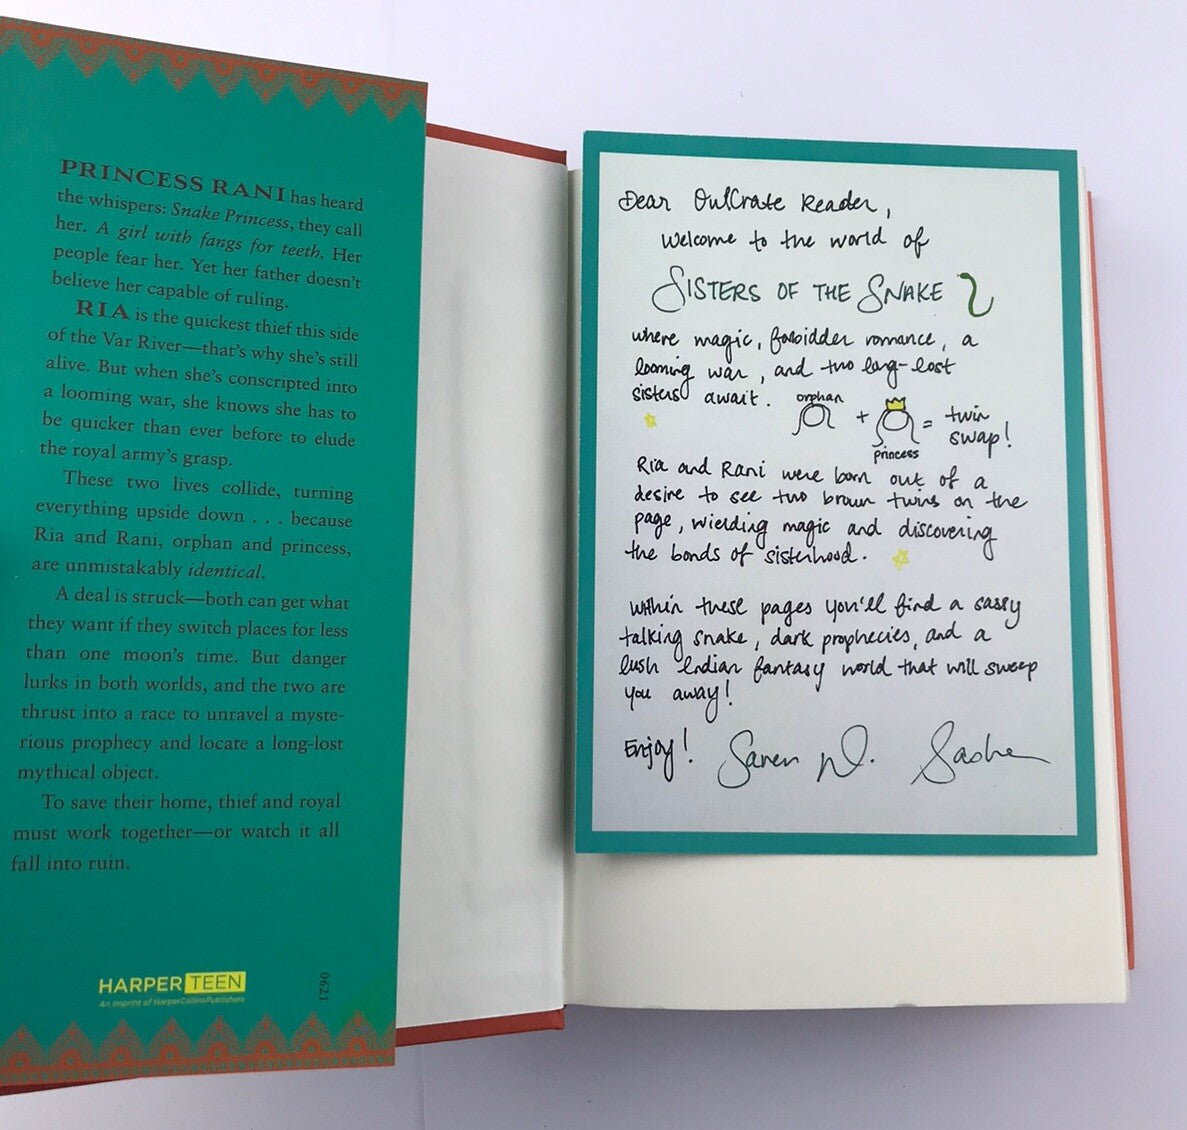 PRINCESS RANI has heard
the whispers: Snake Princess, they call
her. A girl with fangs for teeth. Her
people fear her. Yet her father doesn't
believe her capable of ruling.
RIA is the quickest thief this side
of the Var River—that's why she's still
alive. But when she's conscripted into
a looming war, she knows she has to
be quicker than ever before to elude
the royal army's grasp.
These two lives collide, turning
everything upside down . . . because
Ria and Rani, orphan and princess,
are unmistakably identical.
A deal is struck—both can get what
they want if they switch places for less
than one moon's time. But danger
lurks in both worlds, and the two are
thrust into a race to unravel a myste-
rious prophecy and locate a long-lost
mythical object.
To save their home, thief and royal
must work together—or watch it all
fall into ruin.
HARPER TEEN
An Imprint of HarperCollinsPublishers
0621
Dear OwlCrate Reader,
Welcome to the world of
SISTERS OF THE SNAKE
where magic, forbidden romance, a
looming war, and two long-lost
sisters await.
orphan
+
princess
= twin
swap!
Ria and Rani were born out of a
desire to see two brown twins on the
page, wielding magic and discovering
the bonds of sisterhood.
Within these pages you'll find a sassy
talking snake, dark prophecies, and a
lush Indian fantasy world that will sweep
you away!
Enjoy!
Saren N. Sasha